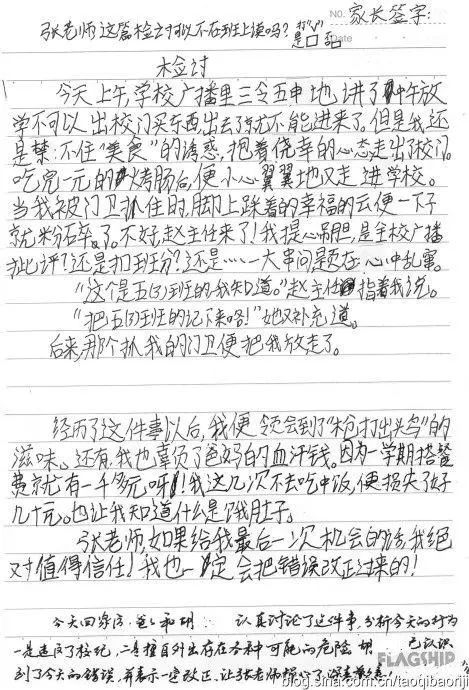 NO. 家长签字:
张老师这篇检讨可以不在班上读吗? 打“√” 是□ 否□
Date
检讨
今天上午,学校广播里三令五申地讲了中午放
学不可以出校门买东西,出去了就不能进来了。但是我还
是禁不住“美食”的诱惑,抱着侥幸的心态走出了校门。
吃完一元的烤肠后,便小心翼翼地又走进学校。
当我被门卫抓住时,脚上踩着的幸福的云便一下子
就粉碎了。不好,赵主任来了!我提心吊胆,是全校广播
批评?还是扣班分?还是……一大串问题在心中乱窜。
“这个是五(3)班的,我知道。”赵主任指着我说。
“把五(3)班的记下来咯!”她又补充道。
后来,那个抓我的门卫便把我放走了。
经历了这件事以后,我便领会到了“枪打出头鸟”的
滋味。还有,我也辜负了爸妈的血汗钱。因为一学期搭餐
费就有一千多元呀!我这几次不去吃中饭,便损失了好
几十元。也让我知道什么是饿肚子。
张老师,如果给我最后一次机会的话,我绝
对值得信任!我也一定会把错误改正过来的!
今天回家后,爸爸和胡 认真讨论了这件事,分析今天的行为
一是违反了校纪,二是擅自外出存在各种可能的危险 胡 已认识
到了今天的错误,并表示一定改正,让张老师操心了,
FLAGSHIP
blog.sina.com.cn/taoqibaoriji